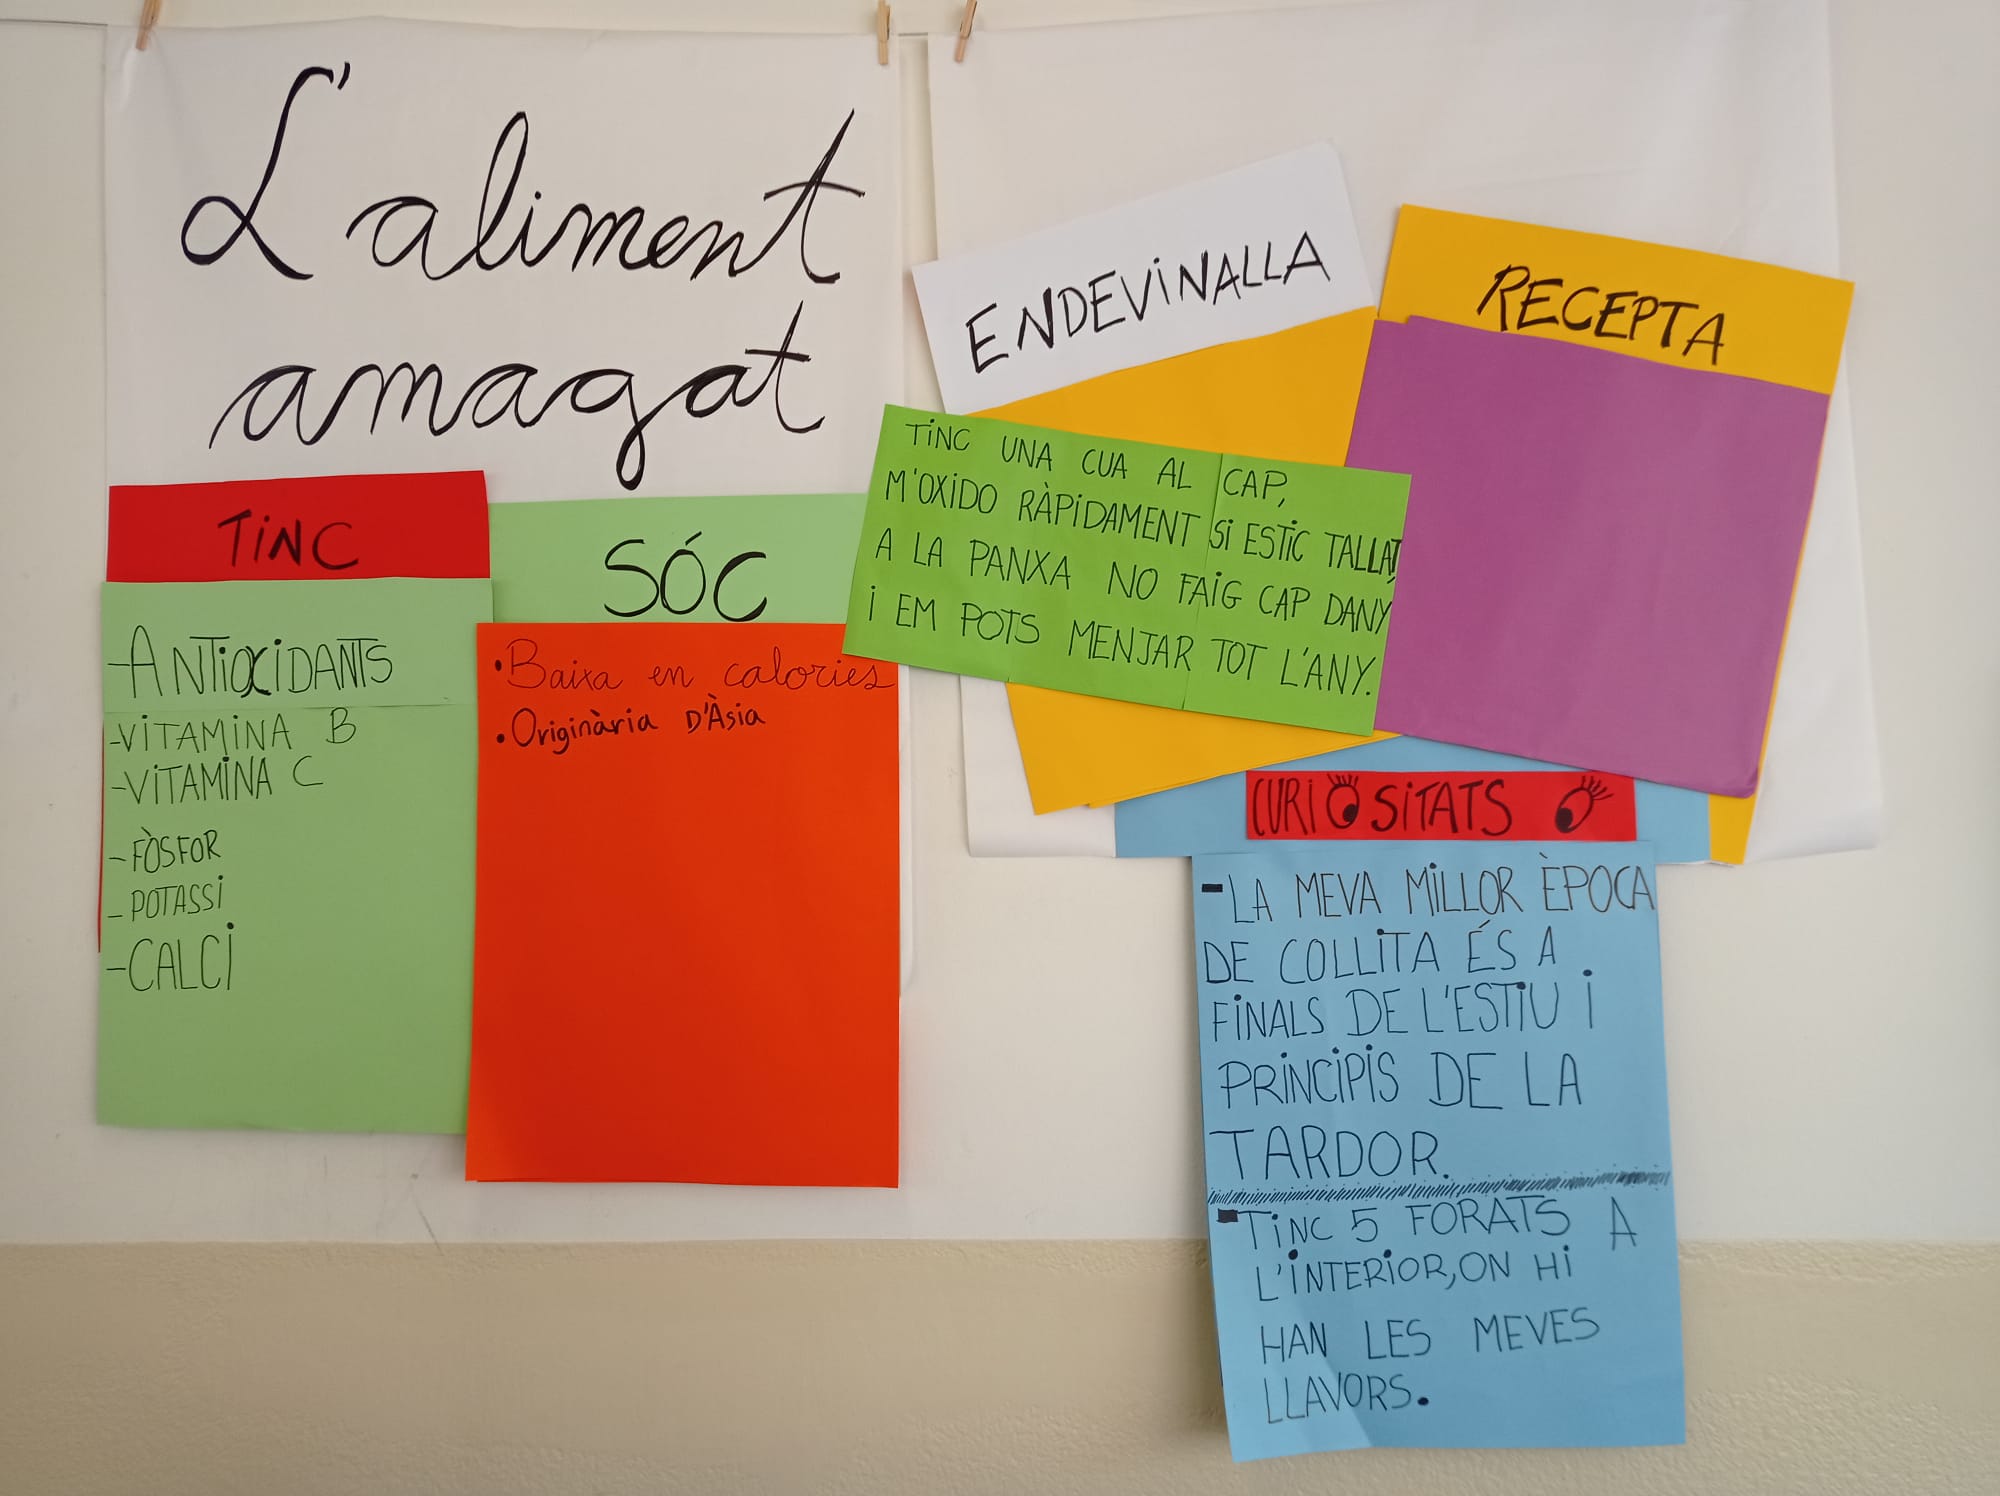 L'aliment
amagat
TiNC
-ANTIOXIDANTS
-ViTAMINA B
-ViTAMINA C
-FÒSFOR
-POTASSI
-CALCi
SÓC
•Baixa en calories
•Originària D'Àsia
ENDEViNALLA
TiNC UNA CUA AL CAP,
M'OXiDO RÀPiDAMENT Si ESTiC TALLAT,
A LA PANXA NO FAiG CAP DANY
i EM POTS MENJAR TOT L'ANY.
RECEPTA
CURiOSiTATS
-LA MEVA MiLLOR ÈPOCA
DE COLLiTA ÉS A
FiNALS DE L'ESTiU i
PRiNCiPiS DE LA
TARDOR.
-TiNC 5 FORATS A
L'iNTERiOR, ON Hi
HAN LES MEVES
LLAVORS.